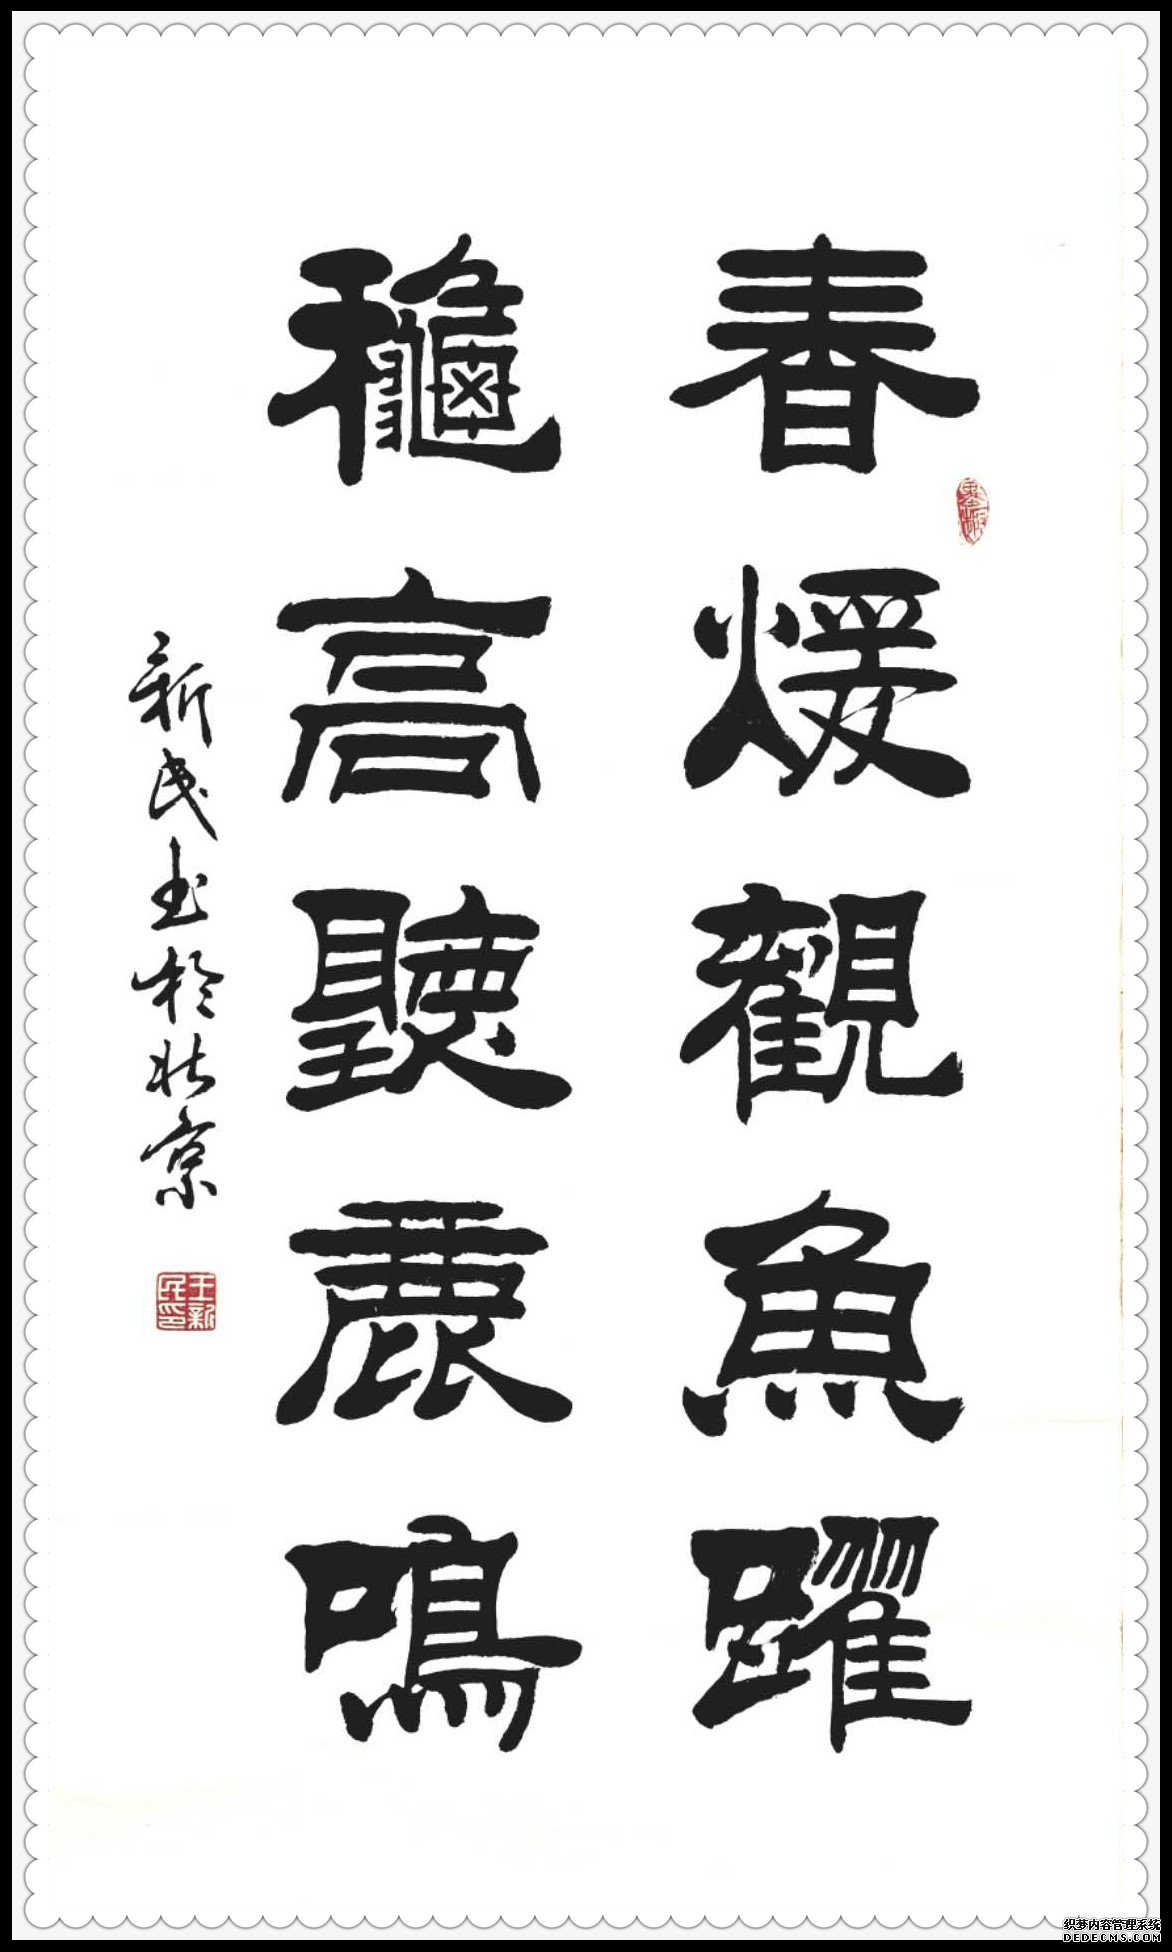 春煖觀魚躍
龝高聽鹿鳴
新民书於北京
王新民印
织梦内容管理系统
DEDECMS.COM